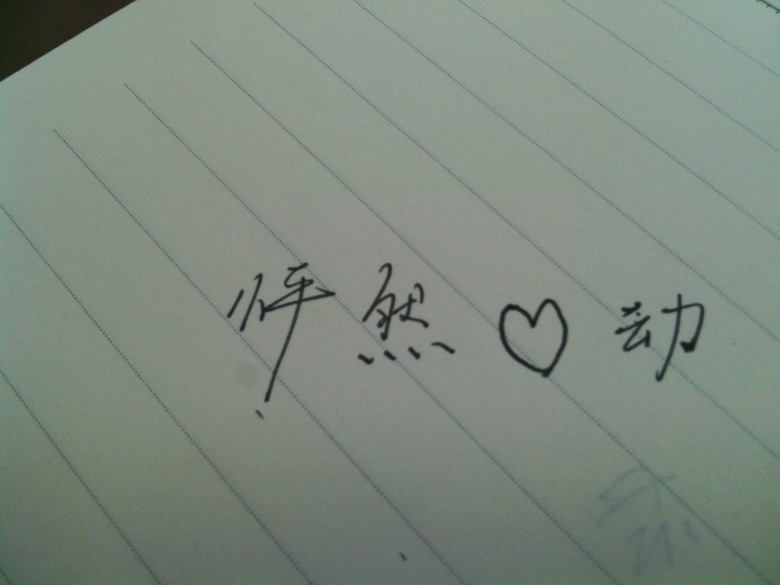 怦然♡动